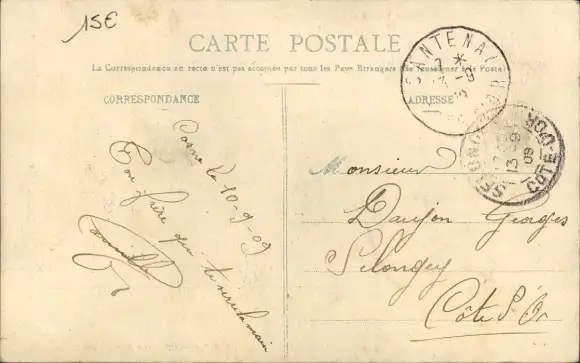 15€
CARTE POSTALE
La Correspondance au recto n'est pas acceptée par tous les Pays Etrangers (Se renseigner à la Poste)
CORRESPONDANCE
ADRESSE
SANTENAY
13 -9
SELONGEY
13 -9
09
COTE-D'OR
Cosne le 10-9-09
Ton frère qui te serre la main
Camille
Monsieur
Daujon Georges
Selongey
Côte d'Or